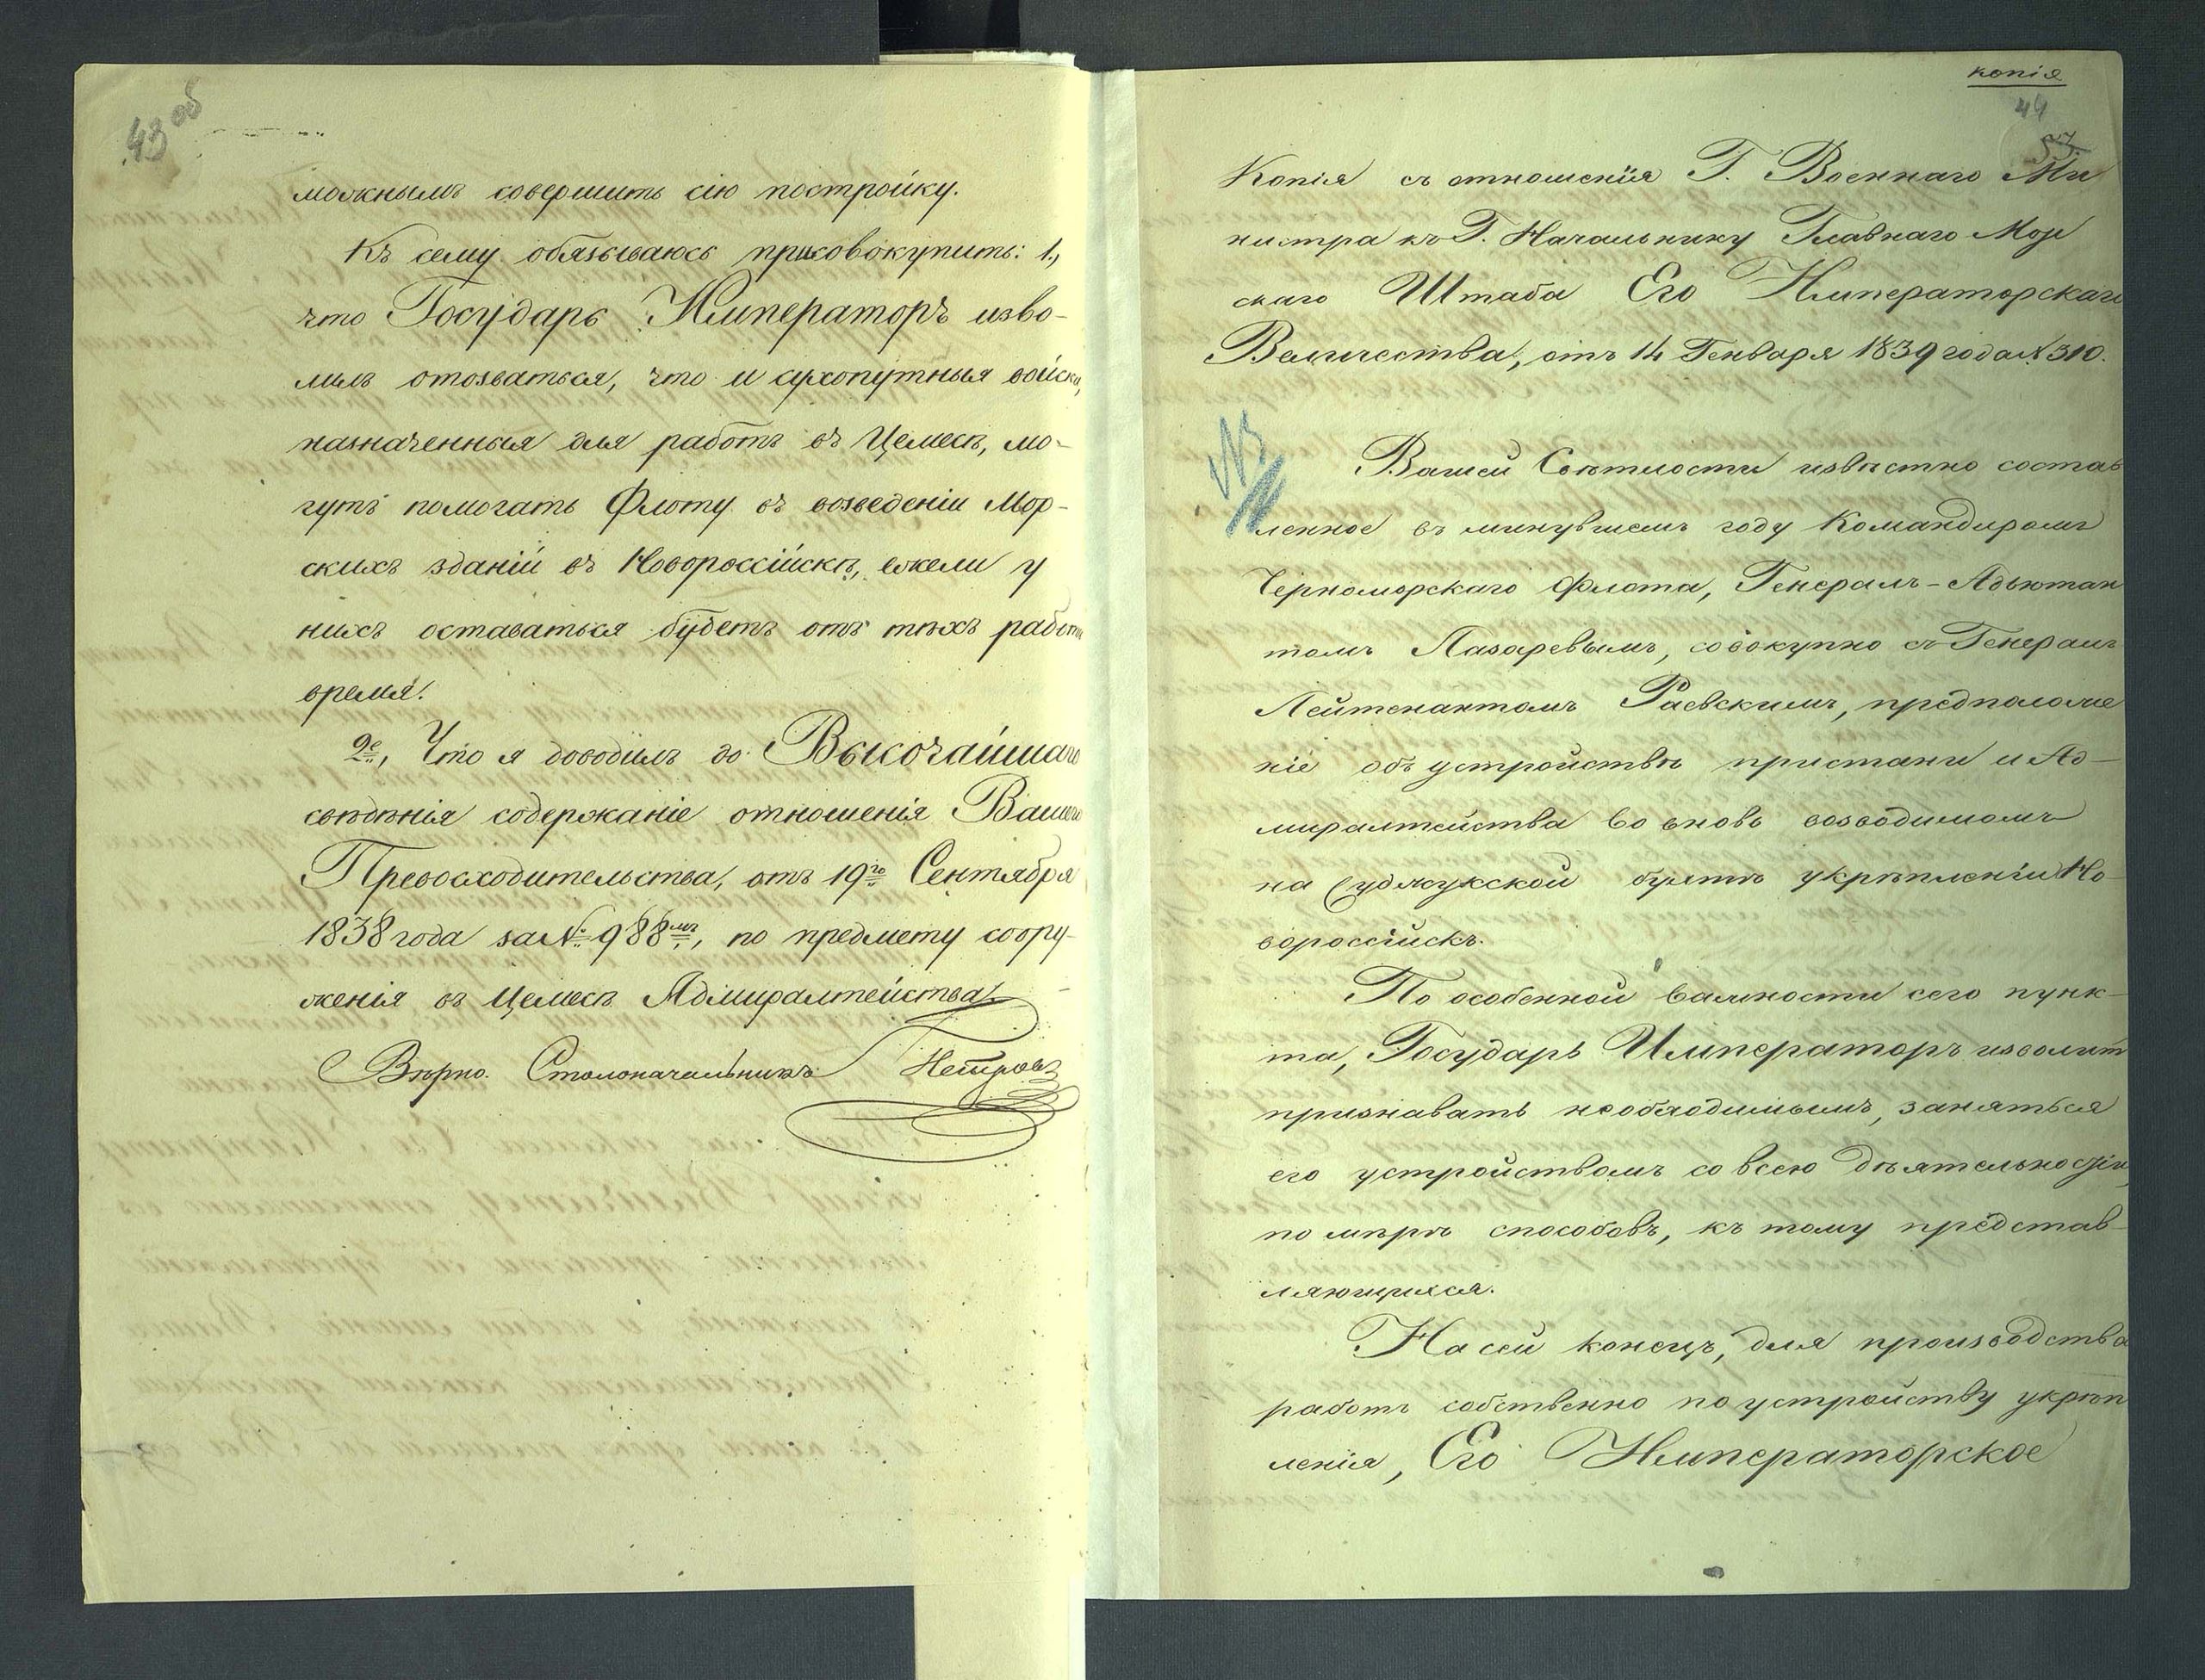 43 об
можнымъ совершить сію постройку.
Къ сему обязываюсь присовокупить: 1.,
что Государь Императоръ изво-
лилъ отозваться, что и сухопутныя войска,
назначенныя для работъ въ Цемесѣ, мо-
гутъ помогать Флоту въ возведеніи Мор-
скихъ зданій въ Новороссійскѣ, ежели у
нихъ оставаться будетъ отъ тѣхъ работъ
время.
2е, Что я доводилъ до Высочайшаго
свѣдѣнія содержаніе отношенія Вашего
Превосходительства, отъ 19го Сентября
1838 года за № 988мъ, по предмету соору-
женія въ Цемесѣ Адмиралтейства.
Вѣрно. Столоначальникъ Петровъ
копія
44
53
Копія съ отношенія Г. Военнаго Ми
нистра къ Г. Начальнику Главнаго Мор
скаго Штаба Его Императорскаго
Величества, отъ 14 Генваря 1839 года № 310.
Вашей Свѣтлости извѣстно состав
ленное въ минувшемъ году Командиромъ
Черноморскаго Флота, Генералъ-Адъютан
томъ Лазаревымъ, совокупно съ Генералъ
Лейтенантомъ Раевскимъ, предположе
ніе объ устройствѣ пристани и Ад-
миралтейства во вновь возводимомъ
на Суджукской бухтѣ укрѣпленіи Но
вороссійскъ.
По особенной важности сего пунк-
та, Государь Императоръ изволитъ
признавать необходимымъ, заняться
его устройствомъ со всею дѣятельностію,
по мѣрѣ способовъ, къ тому представ-
ляющихся.
На сей конецъ, для производства
работъ собственно по устройству укрѣп
ленія, Его Императорское